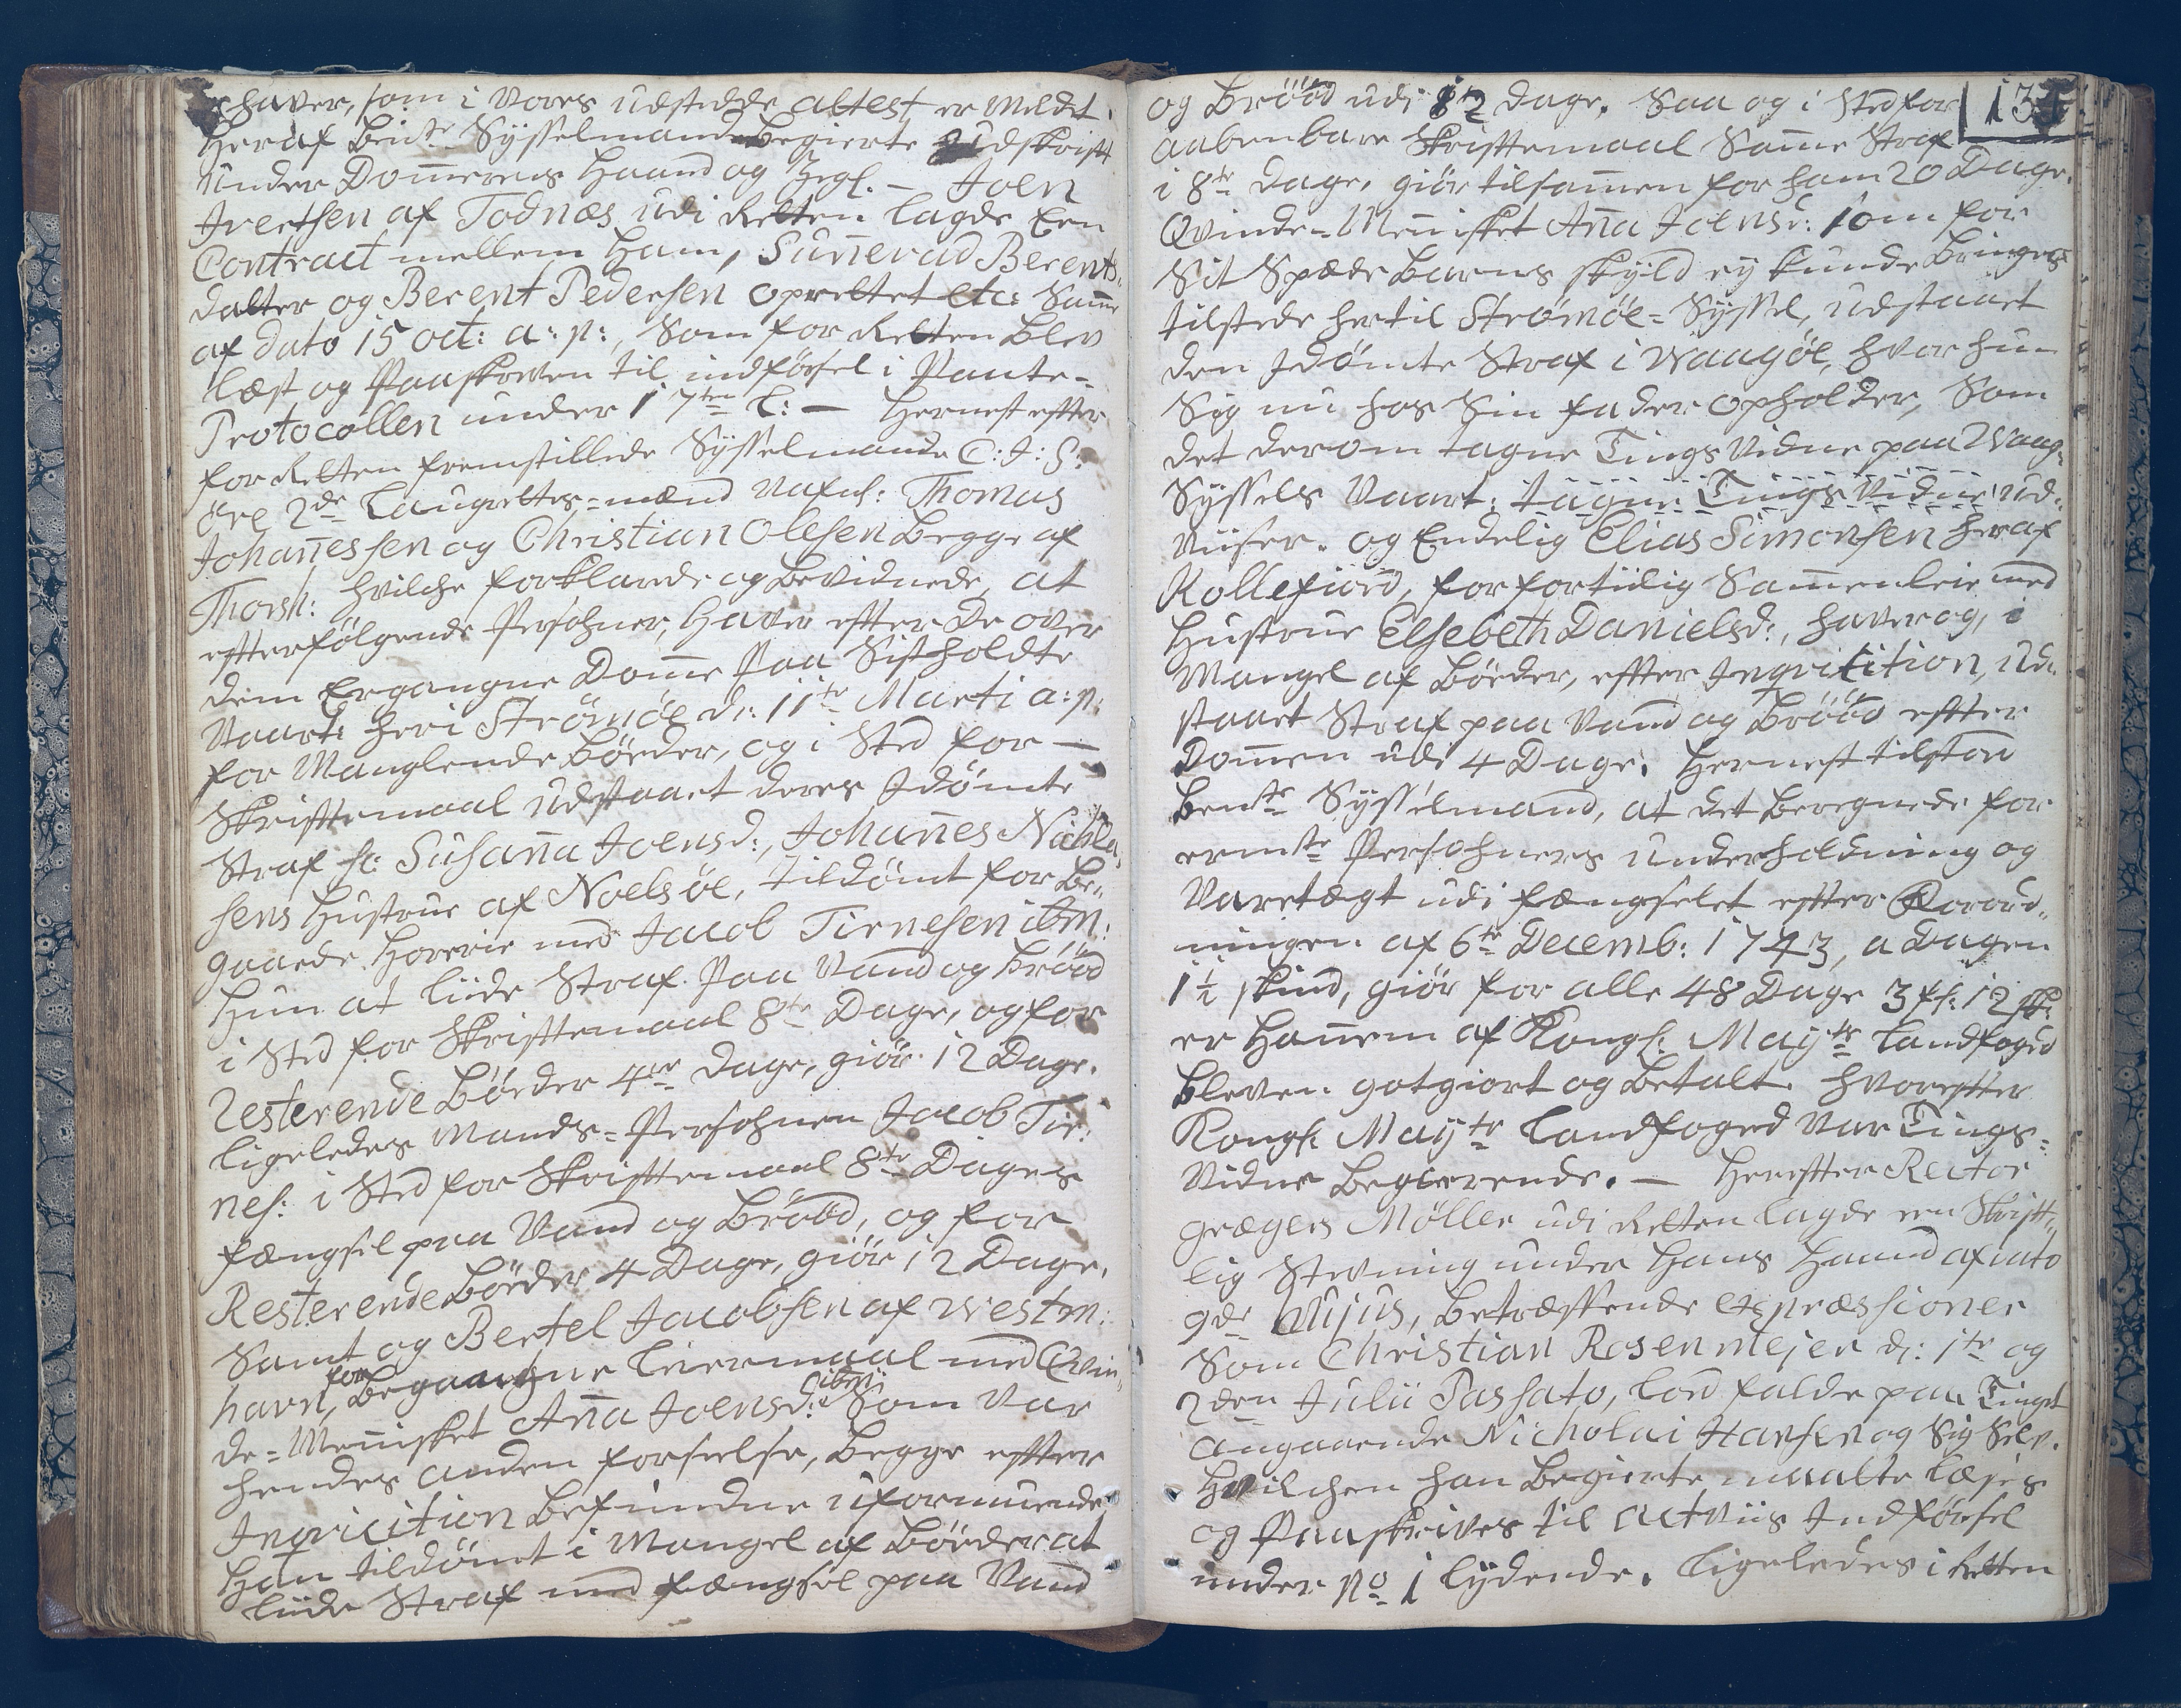 haver, som i Vores udstedde attest er Meldt.
Heraf bem:te Sysselmand begierte udskrift
under Dom̄erens Haand og Zegl. – Joen
Ivertsen af Todnæs udi Retten lagde Een
Contract mellem Ham, Sun̄eva Berents-
datter og Berent Pedersen oprettet etc: Sam̄e
af dato 15 oct: a: p:, Som for Retten blev
læst og Paaskreven til indförsel i Pante-
Protocollen under 17ten l: – Hernest effter
for Retten fremstillede Sysselmand C: J: S:
öre 2de Laugrettes-mænd Nafnl: Thomas
Johan̄essen og Christian Olesen begge af
Thorsh: hvilche forklarede og bevidnede, at
effterfölgende Persohner, haver effter De over
dem Ergangne Dom̄e Paa Sistholdte
Vaart: her i Strömöe d: 11te Marti a: p:
for Manglende böeder, og i Sted for –
Skrifftemaal udstaaet deres Idömte
Straf sc: Susan̄a Joensd:, Johan̄es Nichla-
sens Hustrue af Noelsöe, tildömt for Be-
gaaede Horerie med Jacob Tirnesen ibm:
Hun at liide Straf Paa Vand og Bröd
i Sted for Skrifftemaal 8te Dage, og for
Resterende Böeder 4re Dage, giör 12 Dage.
Ligeledes Mands-Persohnen Jacob Tir-
nes: i Sted for Skrifftemaal 8te Dages
fængsel paa Vand og Bröd, og for
Resterende Böeder 4 Dage, giör 12 Dage,
Samt og Bertel Jacobsen af Westm:
havn, for Begangne Leiermaal med Qvin-
de-Men̄isket An̄a Joensd: ibm: Som Var
hendes anden forseelse, begge effter
Inqvicition befundne uformuende
Han tildömt i Mangel af Böeder at
liide Straf med fængsel paa Vand
og Bröd udi 12 dage. Saa og i Sted for
aabenbare Skrifftemaal Sam̄e Straf
i 8te dage, giör tilsam̄en for ham 20 Dage.
Qvinde-Men̄isket An̄a Joensd: som for
Sit Spæde Barns skyld ey kunde bringes
tilstede her til Strömöe-Syssel, udstaaet
den Idömte Straf i Waagöe, hvor hun
Sig nu hos Sin fader opholder, Som
det derom tagne Tings Vidne paa Waag-
Syssels Vaart: tagne Tings Vidne ud-
viiser. og Endelig Elias Simonsen her af
Kollefiord, for fortiidig Sam̄enleie med
Hustrue Elsebeth Danielsd:, haver og, i
Mangel af böeder, effter Inqvisition, ud-
staaet Straf paa Vand og Bröd effter
Dom̄en udi 4 Dage. Hernest tilstod
bemte Sysselmand, at det beregnede for
ermte Persohners underholdning og
Varetægt udi fængselet effter Forord-
ningen af 6te Decemb: 1743, a Dagen
1½ skind, giör for alle 48 Dage 3 fl: 12 sk:
er Han̄em af Kongl: Mayts Landfoged
bleven gotgiort og betalt. Hvoreffter
Kongl: Mayts Landfoged Var Tings-
Vidne begierende. – Hereffter Rector
Grægers Møller udi Retten lagde een Skrifft-
lig Stevning under Hans Haand af dato
9de Hujus, betræffende Expressioner
Som Christian Rosenmejer d: 1te og
2den Julii Passato, lod falde paa Tinget
angaaende Nicholai Hansen og Sig Selv.
Hvilchen han begierte maatte læses
og Paaskrives til Actviis Indförsel
under No 1 lydende. Ligeledes i Retten